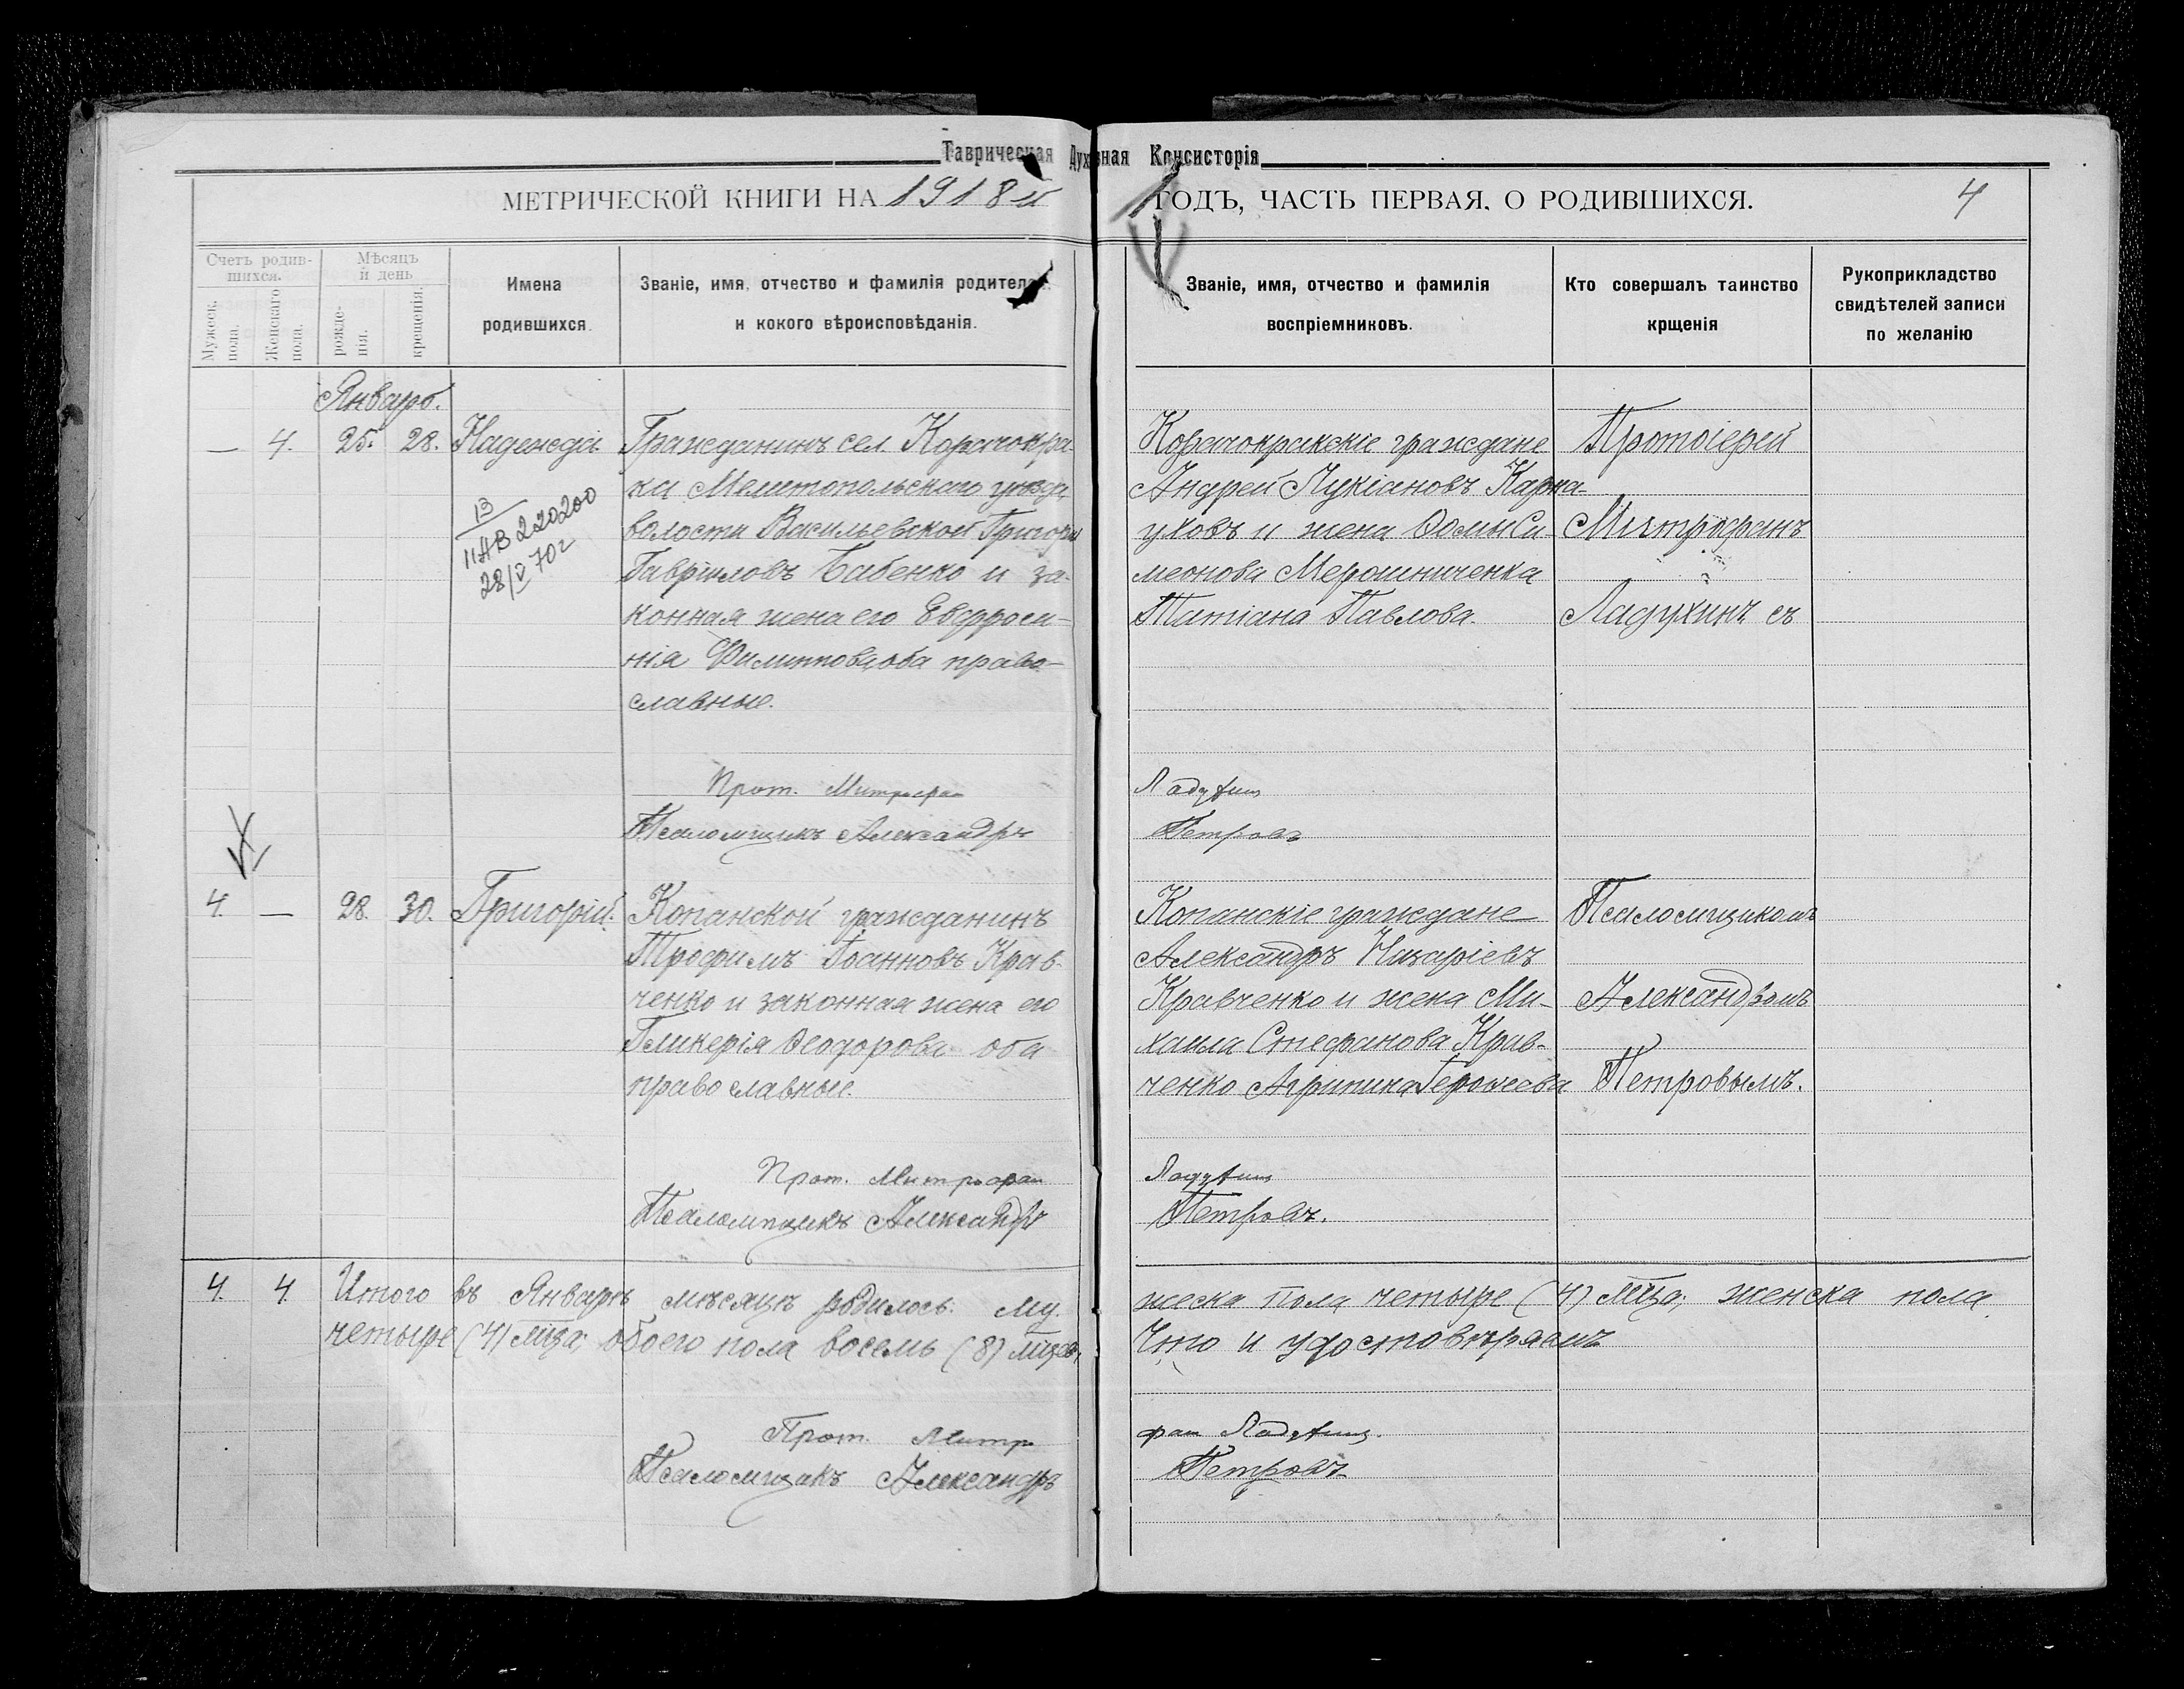 Таврическая Духовная Консисторія
МЕТРИЧЕСКОЙ КНИГИ НА 1918й ГОДЪ, ЧАСТЬ ПЕРВАЯ, О РОДИВШИХСЯ. 4
Счетъ родив-
шихся.
Мужеск. пола.
Женскаго пола.
Мѣсяцъ
и день
рожде-
нія.
крещенія.
Имена
родившихся.
Званіе, имя, отчество и фамилія родителей
и кокого вѣроисповѣданія.
Званіе, имя, отчество и фамилія
воспріемниковъ.
Кто совершалъ таинство
крщенія
Рукоприкладство
свидѣтелей записи
по желанію
Январь.
— 4. 25. 28. Надежда
13
11АВ 220200
28/V 70г
Гражданинъ сел. Карачокра-
ка Мелитопольскаго уѣзда
волости Васильевской Григорій
Гавріиловъ Бабенко и за-
конная жена его Евфроси-
нія Филиппова оба право-
славные.
Прот. Митрофан
Псаломщикъ Александръ
Карачокракскіе граждане
Андрей Лукіановъ Карна-
уховъ и жена Ѳомы Си-
меонова Мерошниченка
Татіана Павлова.
Ладухин
Петровъ
Протоіерей
Митрофанъ
Ладухинъ съ
4. — 28. 30. Григорій.
Копанской гражданинъ
Трофимъ Іоанновъ Крав-
ченко и законная жена его
Гликерія Ѳеодорова оба
православные.
Прот. Митрофан
Псаломщикъ Александръ
Копанскіе граждане
Александръ Назаріевъ
Кравченко и жена Ми-
хаила Стефанова Крав-
ченко Агрипина
Ладухин
Петровъ.
Псаломщикомъ
Александромъ
Петровымъ.
4. 4. Итого въ Январѣ мѣсяцѣ родилось: му-
жеска пола четыре (4) лица; женска пола
четыре (4) лица; обоего пола восемь (8) лицъ,
Что и удостовѣряемъ
Прот. Митро
фан Ладухин.
Псаломщикъ Александръ
Петровъ